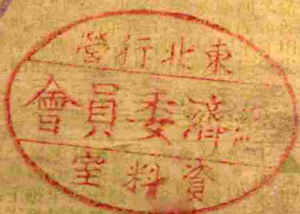 東北行營
經濟委員會
資料室